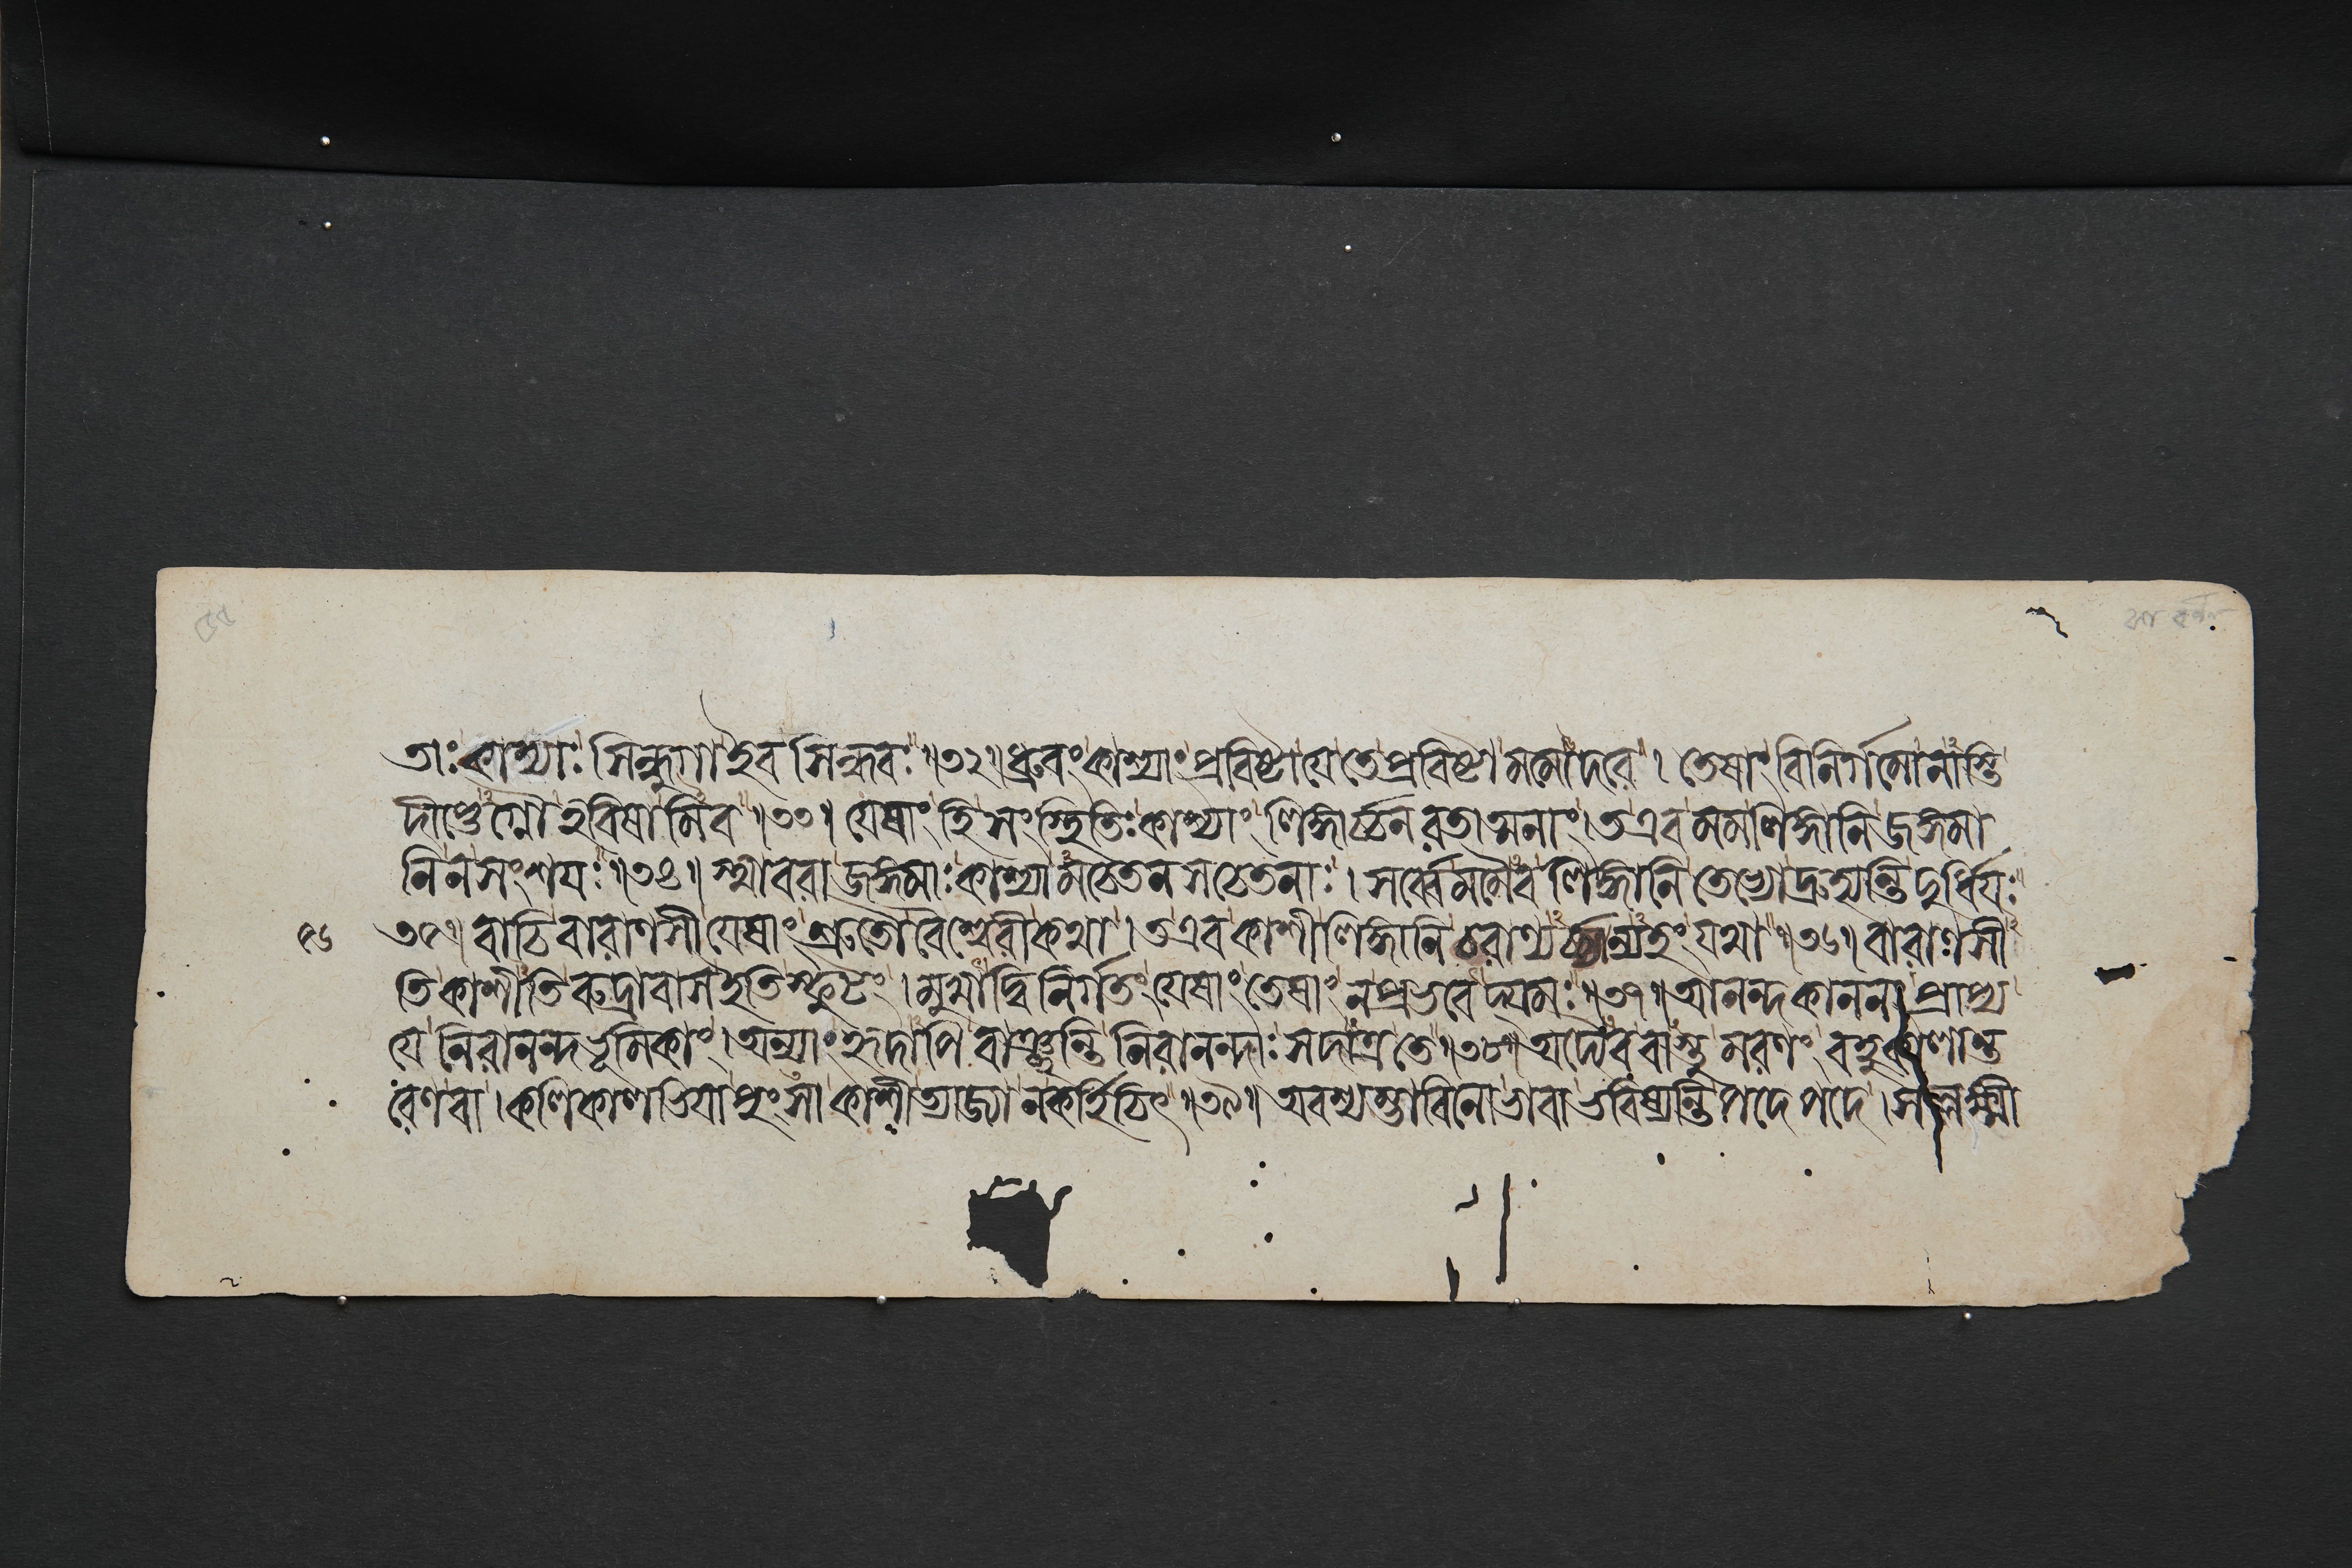 তাঃ কাশ্যাঃ সিন্ধুগা ইব সিন্ধবঃ ॥৩২॥ ধ্রুবং কাশ্যাং প্রবিষ্টা যে তে প্রবিষ্টা মমোদরে । তেষাং বিনির্গমো নাস্তি
দীপ্তেগ্নৌ হবিষামিব ॥৩৩॥ যেষাং হি সংস্থিতিঃ কাশ্যাং লিঙ্গার্চ্চনরতাত্মনাং । ত এব মম লিঙ্গানি জঙ্গমা
নি ন সংশয়ঃ ॥৩৪॥ স্থাবরা জঙ্গমাঃ কাশ্যামচেতনসচেতনাঃ । সর্ব্বে মমৈব লিঙ্গানি তেভ্যো দ্রুহ্যন্তি দুর্ধিয়ঃ
৩৫॥ বাচি বারাণসী যেষাং শ্রুতৌ বৈশ্বেশ্বরী কথা । ত এব কাশীলিঙ্গানি বরাণ্যর্চ্চ্যান্যহং যথা ॥৩৬॥ বারাণসী
তি কাশীতি রুদ্রাবাস ইতি স্ফুটং । মুখাদ্বিনির্গতং যেষাং তেষাং ন প্রভবেদ্যমঃ ॥৩৭॥ আনন্দকাননং প্রাপ্য
যে নিরানন্দভূমিকাং । অন্যাং হৃদাপি বাঞ্ছন্তি নিরানন্দাঃ সদাত্র তে ॥৩৮॥ অদ্যৈব বাস্তু মরণং বহুকালান্ত
রেণ বা । কলিকালভিয়া পুংসা কাশী ত্যাজ্যা ন কর্হিচিৎ ॥৩৯॥ অবশ্যম্ভাবিনো ভাবা ভবিষ্যন্তি পদে পদে । সলক্ষ্মী